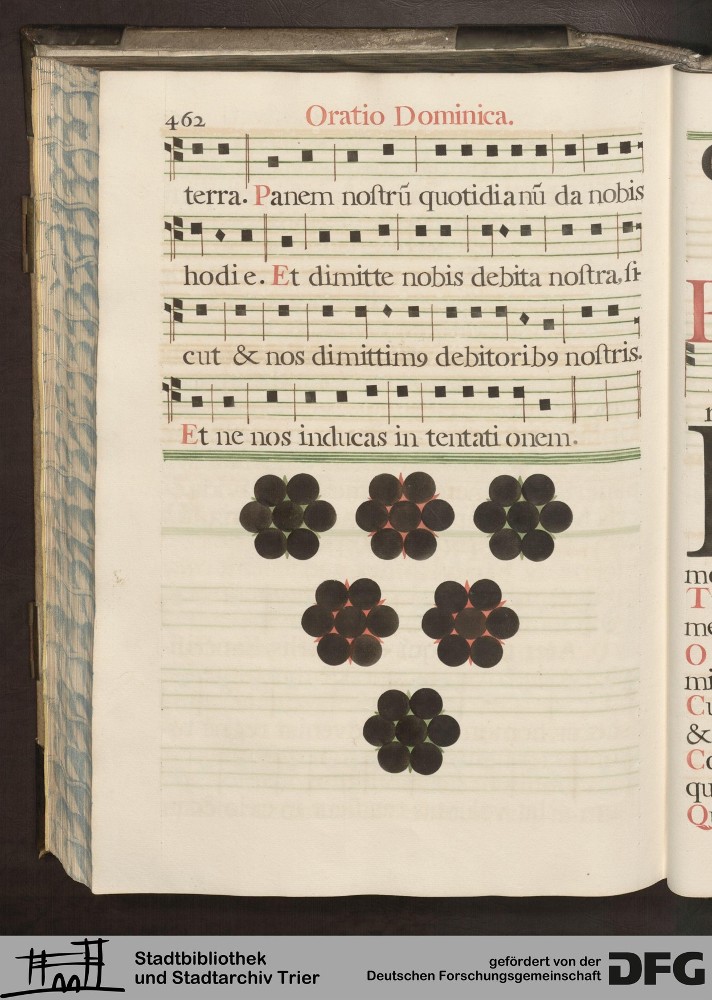 462
Oratio Dominica.
terra. Panem noſtrū quotidianū da nobis
hodie. Et dimitte nobis debita noſtra, ſi-
cut & nos dimittim9 debitorib9 noſtris.
Et ne nos inducas in tentationem.
me
T
me
O
mi
Cu
&
Co
qu
Qu
Stadtbibliothek
und Stadtarchiv Trier
gefördert von der
Deutschen Forschungsgemeinschaft
DFG